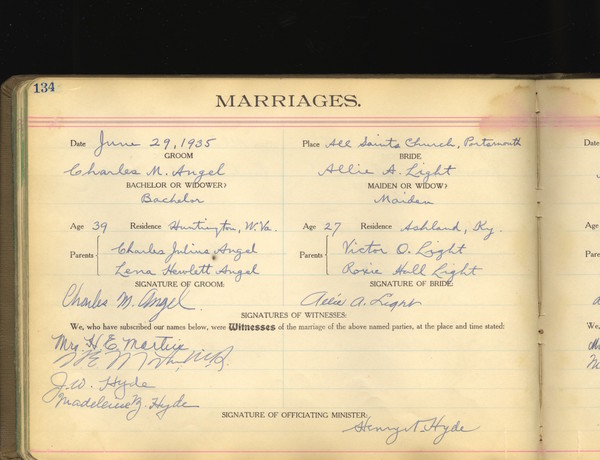 134
MARRIAGES.
Date June 29, 1935 Place All Saints Church, Portsmouth Date
GROOM BRIDE
Charles M. Angel Allie A. Light
BACHELOR OR WIDOWER? MAIDEN OR WIDOW?
Bachelor Maiden
Age 39 Residence Huntington, W. Va. Age 27 Residence Ashland, Ky. Age
Parents Charles Julius Angel Parents Victor O. Light
Lena Hewlett Angel Roxie Hall Light
SIGNATURE OF GROOM: SIGNATURE OF BRIDE
Charles M. Angel Allie A. Light
SIGNATURES OF WITNESSES:
We, who have subscribed our names below, were Witnesses of the marriage of the above named parties, at the place and time stated: We,
Mrs. H. E. Martin
J. W. Hyde
Madeleine Hyde
SIGNATURE OF OFFICIATING MINISTER:
Henry N. Hyde